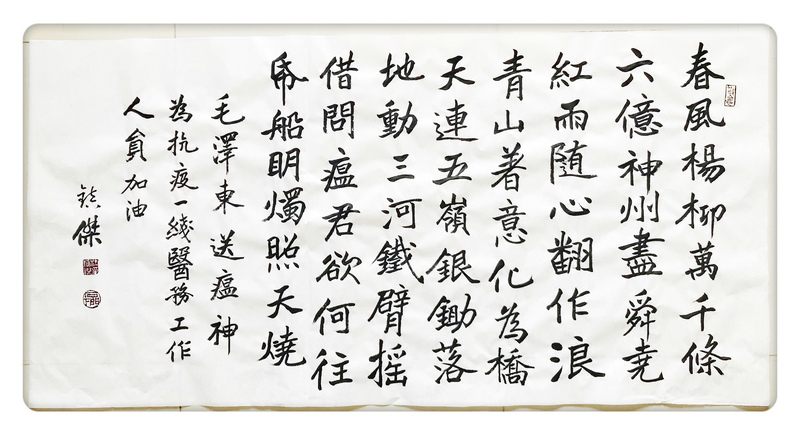 春風楊柳萬千條
六億神州盡舜堯
紅雨随心翻作浪
青山著意化為橋
天連五嶺銀鋤落
地動三河鐵臂摇
借問瘟君欲何往
帋船明燭照天燒
毛澤東送瘟神
為抗疫一綫醫務工作
人員加油
傑